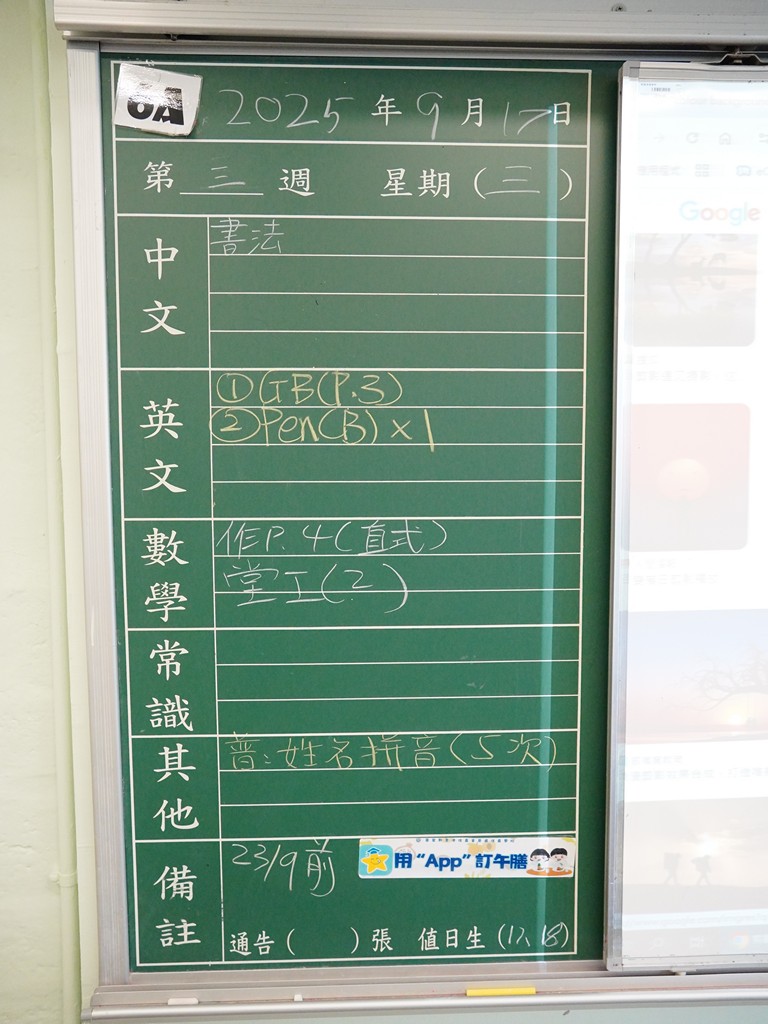 6A
2025 年 9 月 17 日
第 三 週 星期 (三)
中文
書法
英文
①GB(P.3)
②Pen(B)×1
數學
作P.4(直式)
堂工(2)
常識
其他
普:姓名拼音(5次)
備註
23/9前
用“App”訂午膳
通告( )張 值日生(17、18)
Google